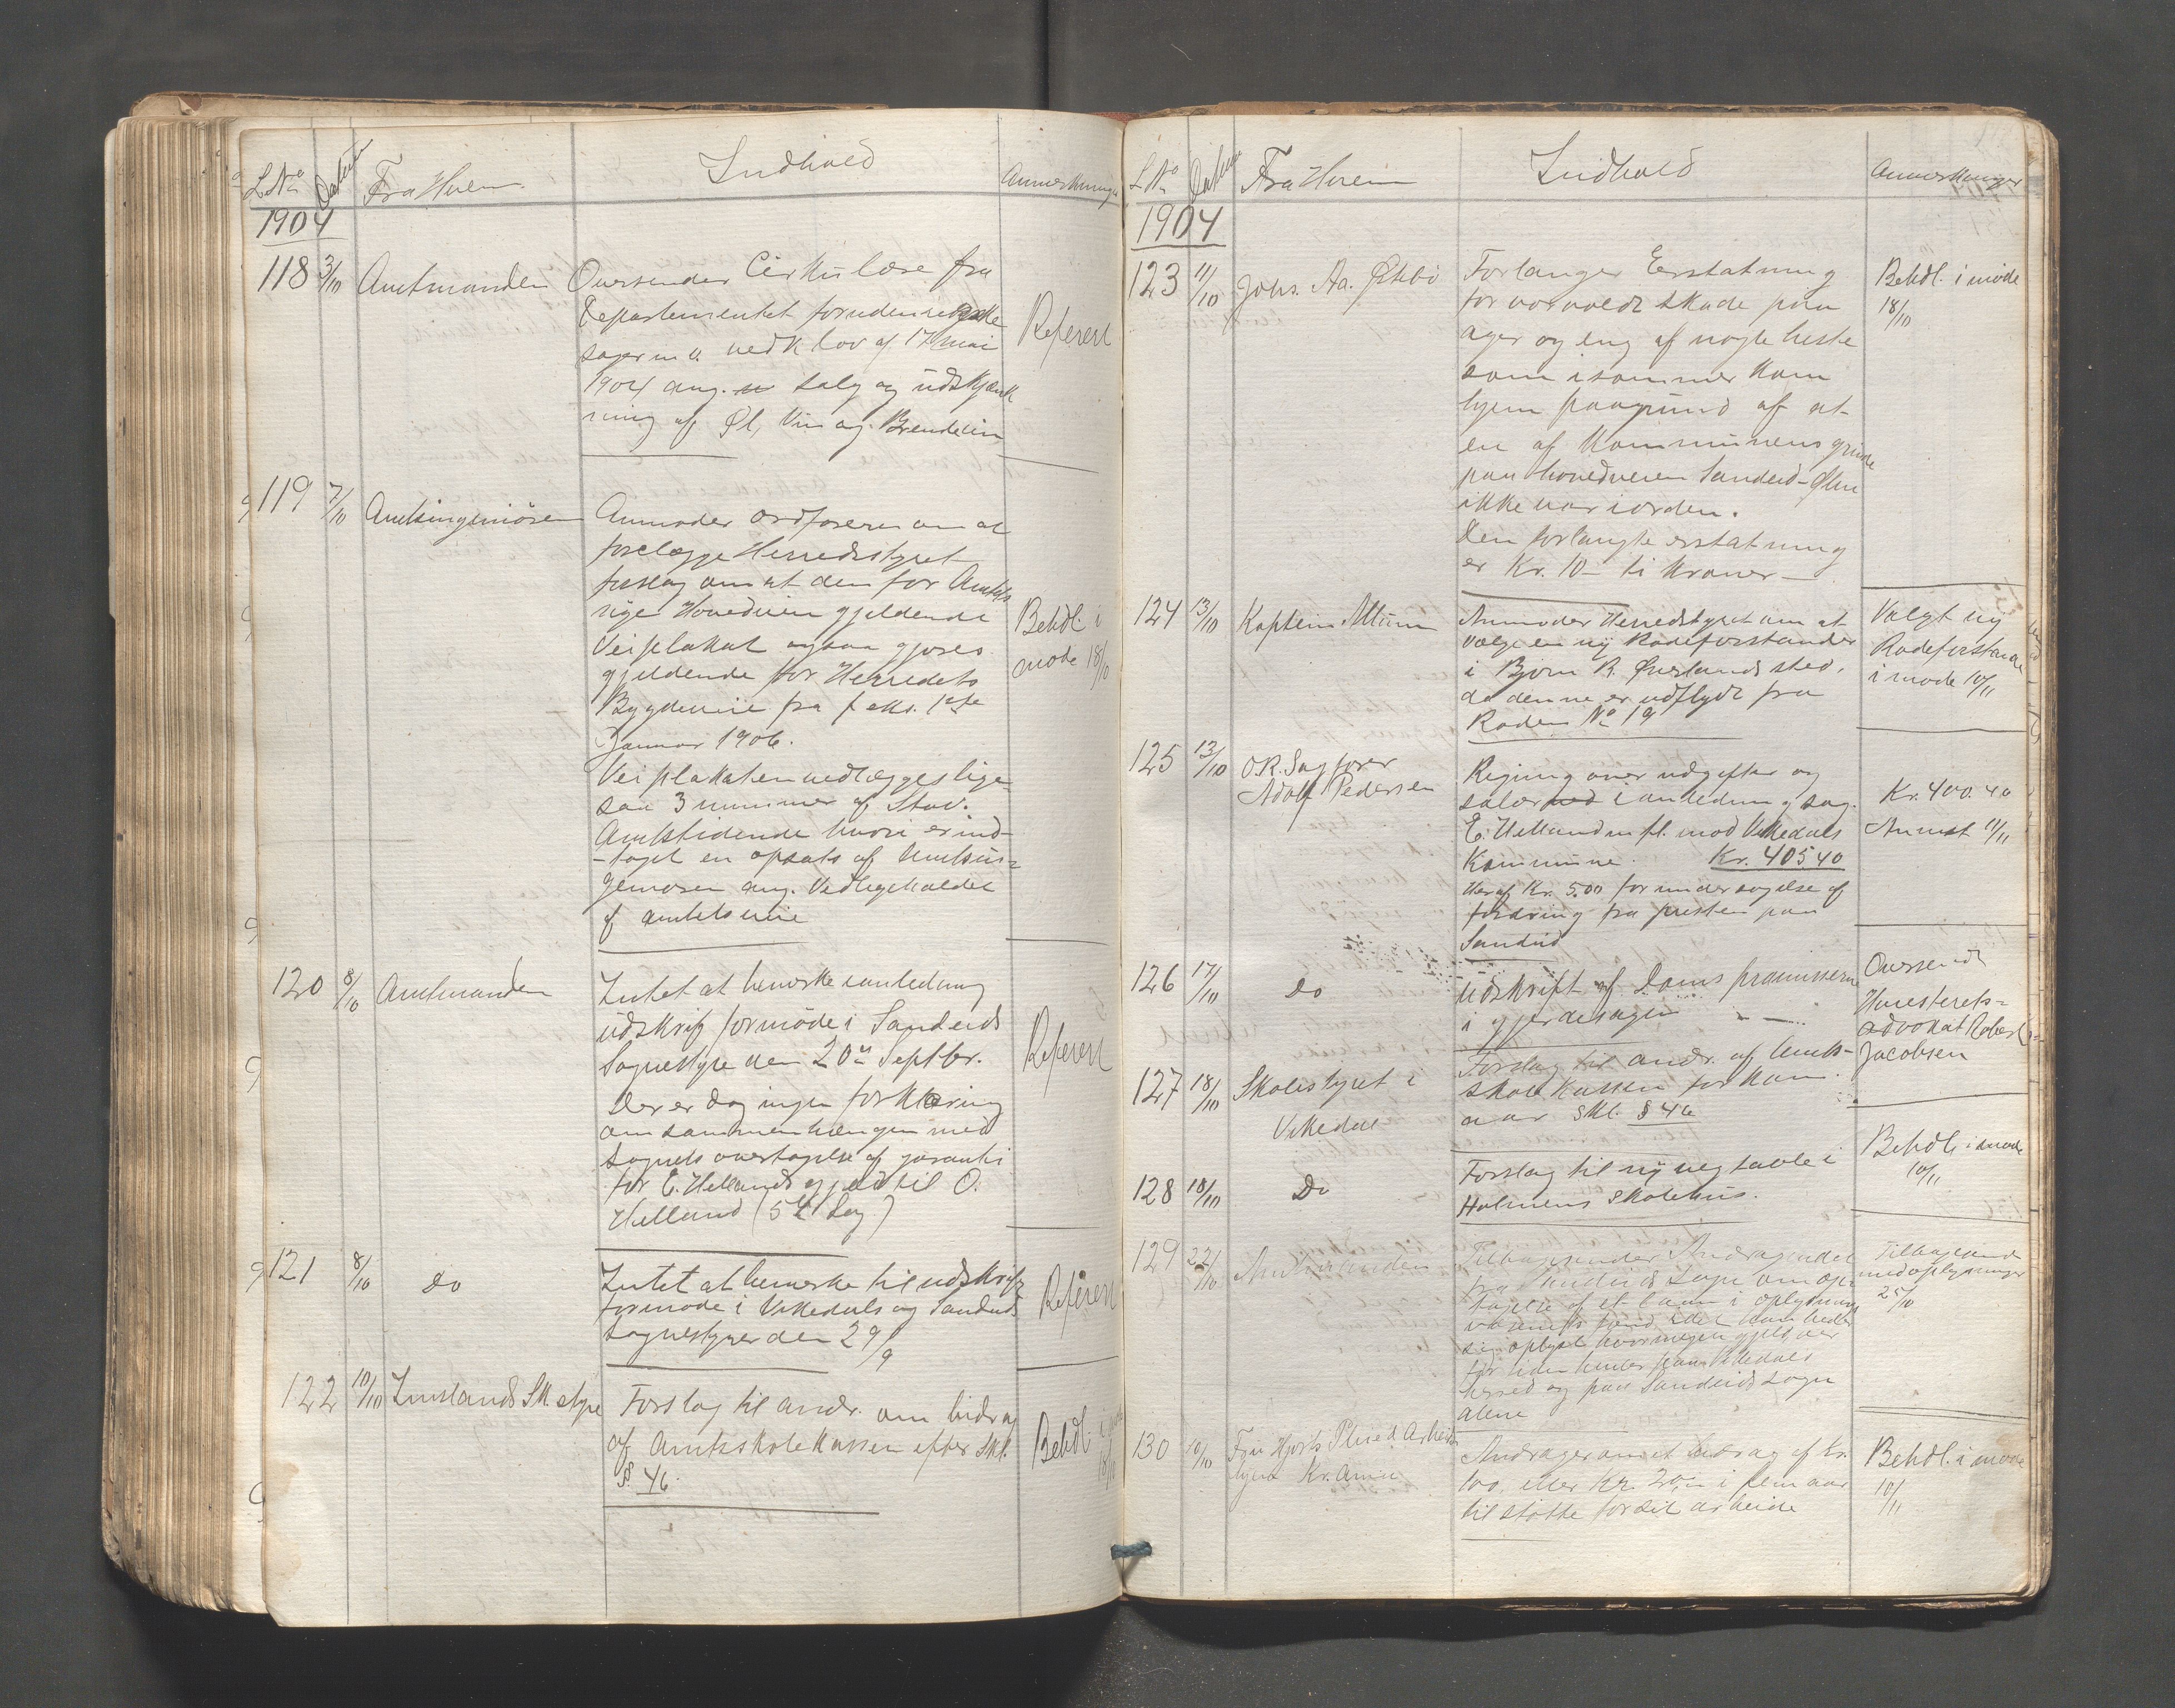 L.No Datum Fra Hvem Indhold Anmerkninger
1904
118 3/10 Amtmanden Oversender Cirkulære fra
Departementet for udenrigske
sager m.v. vedk lov af 17 mai
1904 ang. salg og udskjænk
ning af Øl, Vin og Brendevin
Referert
119 7/10 Amtsingeniøren Anmoder ordføreren om at
forelægge Herredsstyret
forslag om at den for Amtets
rige Hovedveie gjeldende
Veiplakat ogsaa gjøres
gjeldende for Herredets
Bygdeveie fra f. eks. 1ste
Januar 1906.
Veiplakaten vedlægges lige-
saa 3 nummer af Stav.
Amtstidende hvori er ind-
-taget en opsats af Amtsin-
geniøren ang. Vedligeholdet
af amtets veie
Behdl. i
møde 18/10
120 8/10 Amtmanden Intet at bemerke i anledning
udskrift for møde i Sandeids
Sognestyre den 20de Septbr.
Der er dog ingen forklaring
om sammenhængen med
sognets overtagelse af garanti
for E. Hellands gjæld til O.
Helland (5te Sag)
Referert
121 8/10 Do Intet at bemerke til udskrift
for møde i Vikedals og Sandeids
sognestyrer den 29/9
Referert
122 10/10 Imslands Sk. styre Forslag til andr. om bidrag
af Amtsskolekassen efter Skl.
§ 46.
Behdl. i møde
18/10
L.No Datum Fra Hvem Indhold Anmerkninger
1904
123 11/10 Johs. Aa. Østebø Forlanger Erstatning
for voldt skade paa
ager og eng af nogle heste
som i sommer kom
hjem paagrund af at
en af Kommunens grinde
paa hovedveien Sandeid-Ølen
ikke var i orden.
Den forlangte erstatning
er Kr. 10- ti kroner-
Behdl. i møde
18/10
124 13/10 Kaptein Anmoder Herredstyret om at
vælge en ny Rodeforstander
i Bjørn R. Øverlands sted,
da denne er udflydt fra
Roden No 19
Valgt ny
Rodeforstander
i møde 10/11
125 13/10 O.R. Sagfører
Adolf Pedersen
Regning over udgifter og
salær i anledning sag.
E. Helland m fl. mod Vikedals
Kommune. Kr. 405 40
Heraf Kr. 5.00 for undersøgelse af
fordring fra presten paa
Sandeid
Kr. 400. 40
Anvist 11/11
126 17/10 Do Udskrift af Doms præmisserne
i gjerdesagen
Oversendt
Høiesterets-
advokat Robert
Jacobsen
127 18/10 Skolestyret i
Vikedal
Forslag til andr. af Amts-
skolekassen for kom.
aar skl. § 46
128 18/10 Do Forslag til ny vegtavle i
Holmens skolehus.
Behdl. i møde
10/11
129 22/10 Amtmanden Tilbagesender Andragendet
fra Sandeids Sogn om op-
tagelse af et laan i oplysnings
væsenets fond idet han beder
sig oplyst hvormegen gjeld der
for tiden hviler paa Vikedals
herred og paa Sandeids sogn
alene
Tilbagesendt
med oplysninger
25/10
130 10/10 Fru Hjorts Pleie & Arbeids
hjem Kr. ania
Andrager om et bidrag af Kr.
100, eller Kr. 20,- i fem aar
til støtte for sit arbeide
Behdl. i møde
10/11